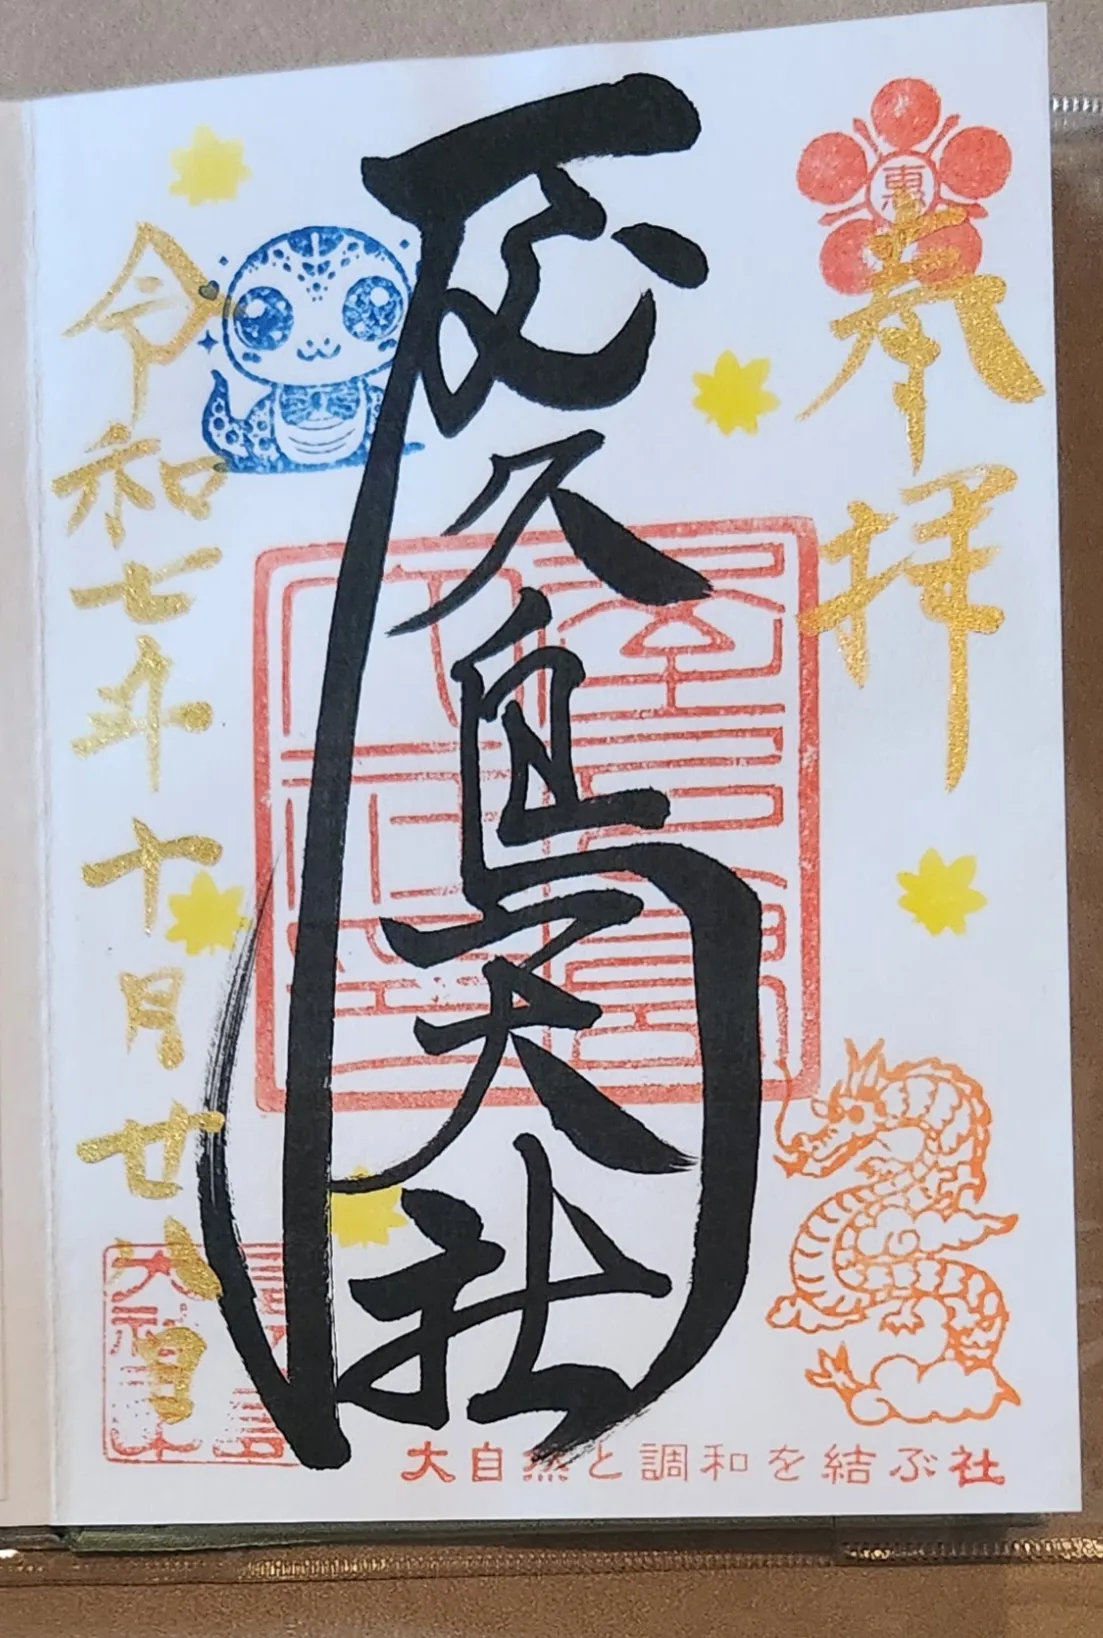 奉拝
惠
屋久島大社
令和七年十月廿八日
大自然と調和を結ぶ社